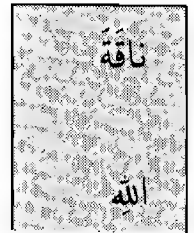 نَاقَةَ
اللَّهِ